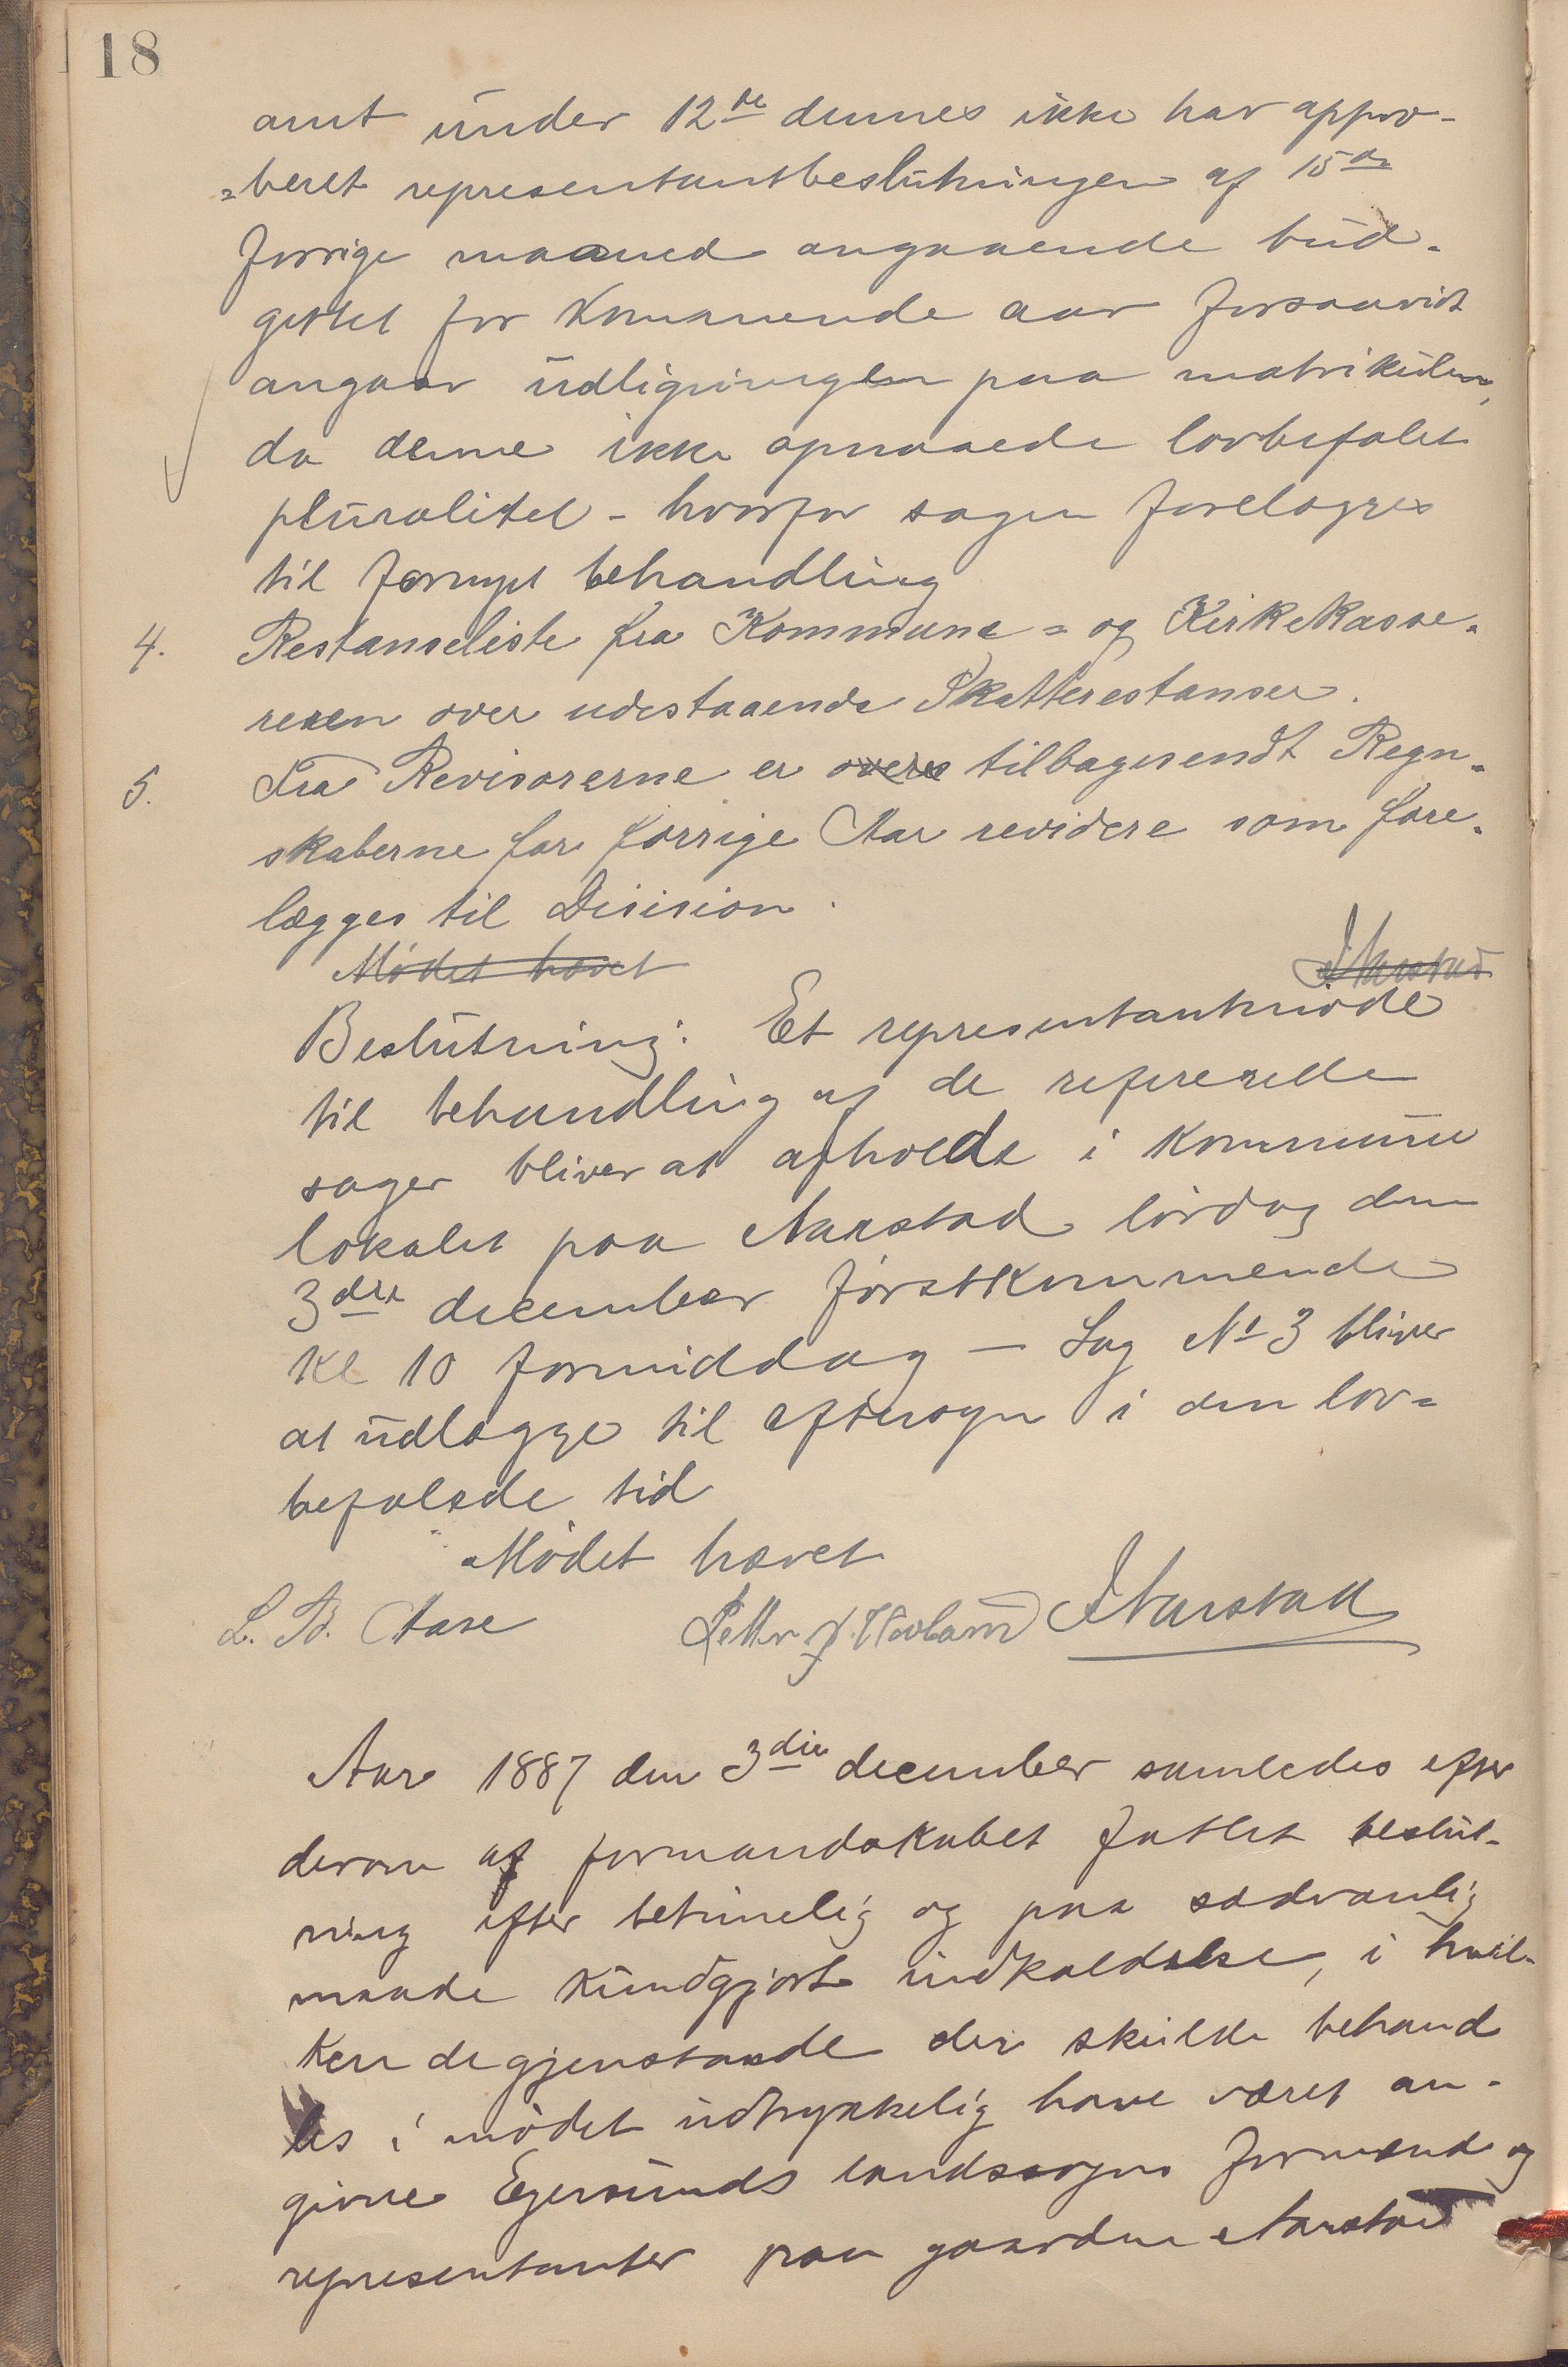 18
amt under 12te dennes ikke har appro-
=beret representantbeslutningen af 15de
forrige maaned angaaende bud-
gettet for kommende aar forsaavidt
angaar udligningen paa matrikulen,
da denne ikke opnaaede lovbefalet
pluralitet - hvorfor sagen forelægges
til fornyet behandling
4. Restanseliste fra Kommune= og Kirkekasse-
reren over udestaaende Skatterestanser.
5. Fra Revisorerne er overs tilbagesendt Regn-
skaberne for forrige Aar revidere som fore-
lægges til Disision.
Mødet hævet JAarstad
Beslutning: Et representantmøde
til behandling af de refererede
sager bliver at afholde i kommune
lokalet paa Aarstad lørdag den
3die december førstkommende
kl 10 formiddag - Sag No 3 bliver
at udlægge til eftersyn i den lov=
befalede tid
Mødet hævet
L. B. Aase Petter J. Hovland JAarstad
Aar 1887 den 3die december samledes efter
derom af formandskabet fattet beslut-
ning efter betimelig og paa sædvanlig
maade kundgjort indkaldelse, i hvil-
ken de gjenstande der skulde behand
les i mødet udtrykkelig have været an-
givne Egersunds landsogns formænd og
representanter paa gaarden Aarstad